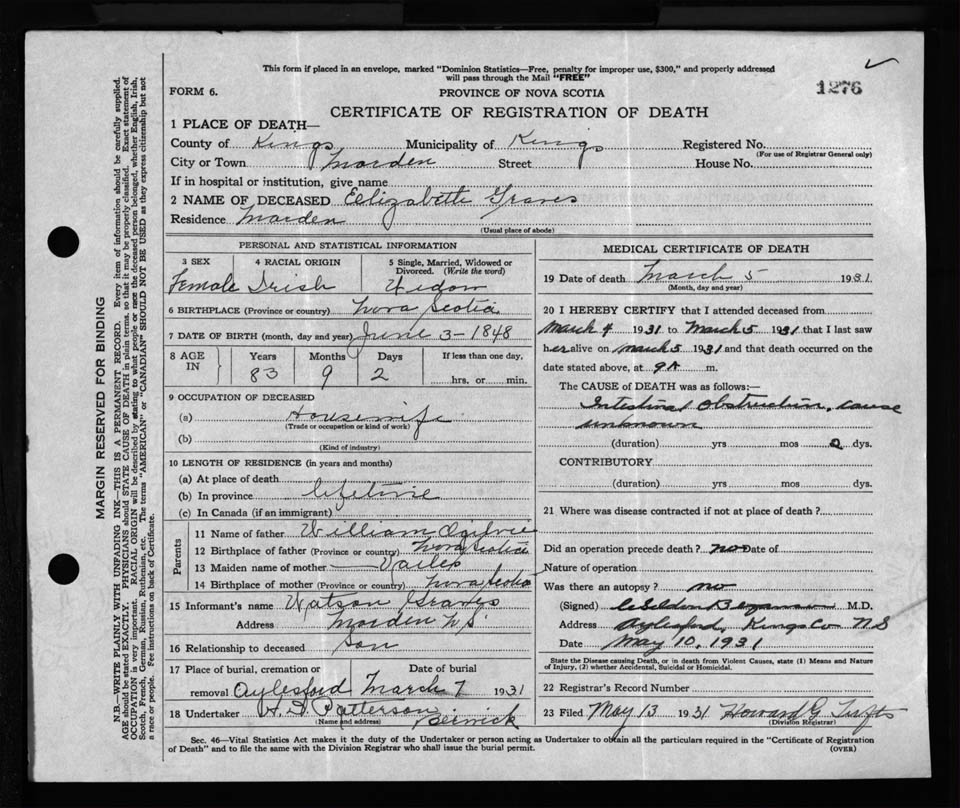 This form if placed in an envelope, marked "Dominion Statistics—Free, penalty for improper use, $300," and properly addressed
will pass through the Mail "FREE"
1276
FORM 6.
PROVINCE OF NOVA SCOTIA
CERTIFICATE OF REGISTRATION OF DEATH
1 PLACE OF DEATH—
County of Kings Municipality of Kings Registered No.
(For use of Registrar General only)
City or Town Morden Street House No.
If in hospital or institution, give name
2 NAME OF DECEASED Eelizabeth Graves
Residence Morden
(Usual place of abode)
PERSONAL AND STATISTICAL INFORMATION
3 SEX 4 RACIAL ORIGIN 5 Single, Married, Widowed or
Divorced. (Write the word)
Female Irish Widow
6 BIRTHPLACE (Province or country) Nova Scotia
7 DATE OF BIRTH (month, day and year) June 3-1848
8 AGE IN Years Months Days If less than one day,
83 9 2 hrs. or min.
9 OCCUPATION OF DECEASED
(a) Housewife
(Trade or occupation or kind of work)
(b)
(Kind of industry)
10 LENGTH OF RESIDENCE (in years and months)
(a) At place of death
(b) In province lifetime
(c) In Canada (if an immigrant)
Parents
11 Name of father William Ogilvie
12 Birthplace of father (Province or country) Nova Scotia
13 Maiden name of mother
14 Birthplace of mother (Province or country) Nova Scotia
15 Informant's name Watson Graves
Address Morden N.S.
16 Relationship to deceased Son
17 Place of burial, cremation or Date of burial
removal Aylesford March 7 1931
18 Undertaker H.D. Patterson Berwick
(Name and address)
MEDICAL CERTIFICATE OF DEATH
19 Date of death March 5 1931
(Month, day and year)
20 I HEREBY CERTIFY that I attended deceased from
March 4 1931 to March 5 1931 that I last saw
her alive on March 5 1931 and that death occurred on the
date stated above, at 9 A m.
The CAUSE OF DEATH was as follows:—
Intestinal Obstruction, cause
unknown
(duration) yrs mos 2 dys.
CONTRIBUTORY
(duration) yrs mos dys.
21 Where was disease contracted if not at place of death?
Did an operation precede death? no Date of
Nature of operation
Was there an autopsy? no
(Signed) M.D.
Address Aylesford, Kings Co N S
Date May 10, 1931
State the Disease causing Death, or in death from Violent Causes, state (1) Means and Nature
of Injury, (2) whether Accidental, Suicidal or Homicidal.
22 Registrar's Record Number
23 Filed May 13 1931 Howard G
(Division Registrar)
Sec. 46—Vital Statistics Act makes it the duty of the Undertaker or person acting as Undertaker to obtain all the particulars required in the "Certificate of Registration
of Death" and to file the same with the Division Registrar who shall issue the burial permit. (OVER)
MARGIN RESERVED FOR BINDING
N.B.—WRITE PLAINLY WITH UNFADING INK—THIS IS A PERMANENT RECORD. Every item of information should be carefully supplied.
AGE should be stated EXACTLY. PHYSICIANS should STATE CAUSE OF DEATH in plain terms, so that it may be properly classified. Exact statement of
OCCUPATION is very important. RACIAL ORIGIN will be described by stating to what people or race the deceased person belonged, whether English, Irish,
Scotch, French, German, Russian, Ruthenian, etc. The terms "AMERICAN" or "CANADIAN" SHOULD NOT BE USED as they express citizenship but not
a race or people. See instructions on back of Certificate.